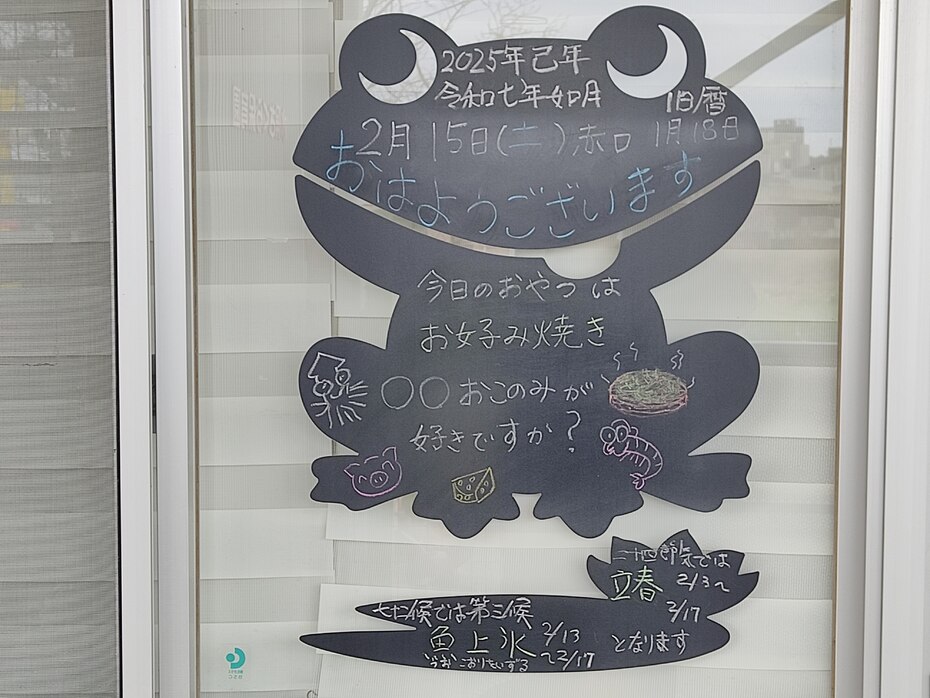 2025年己年
令和七年如月
旧暦
2月15日(土)赤口 1月18日
おはようございます
今日のおやつは
お好み焼き
〇〇おこのみが
好きですか?
二十四節気では
立春 2/3～
2/17
となります
七十二候では第三候
魚上氷 2/13
～2/17
うおこおりをいずる